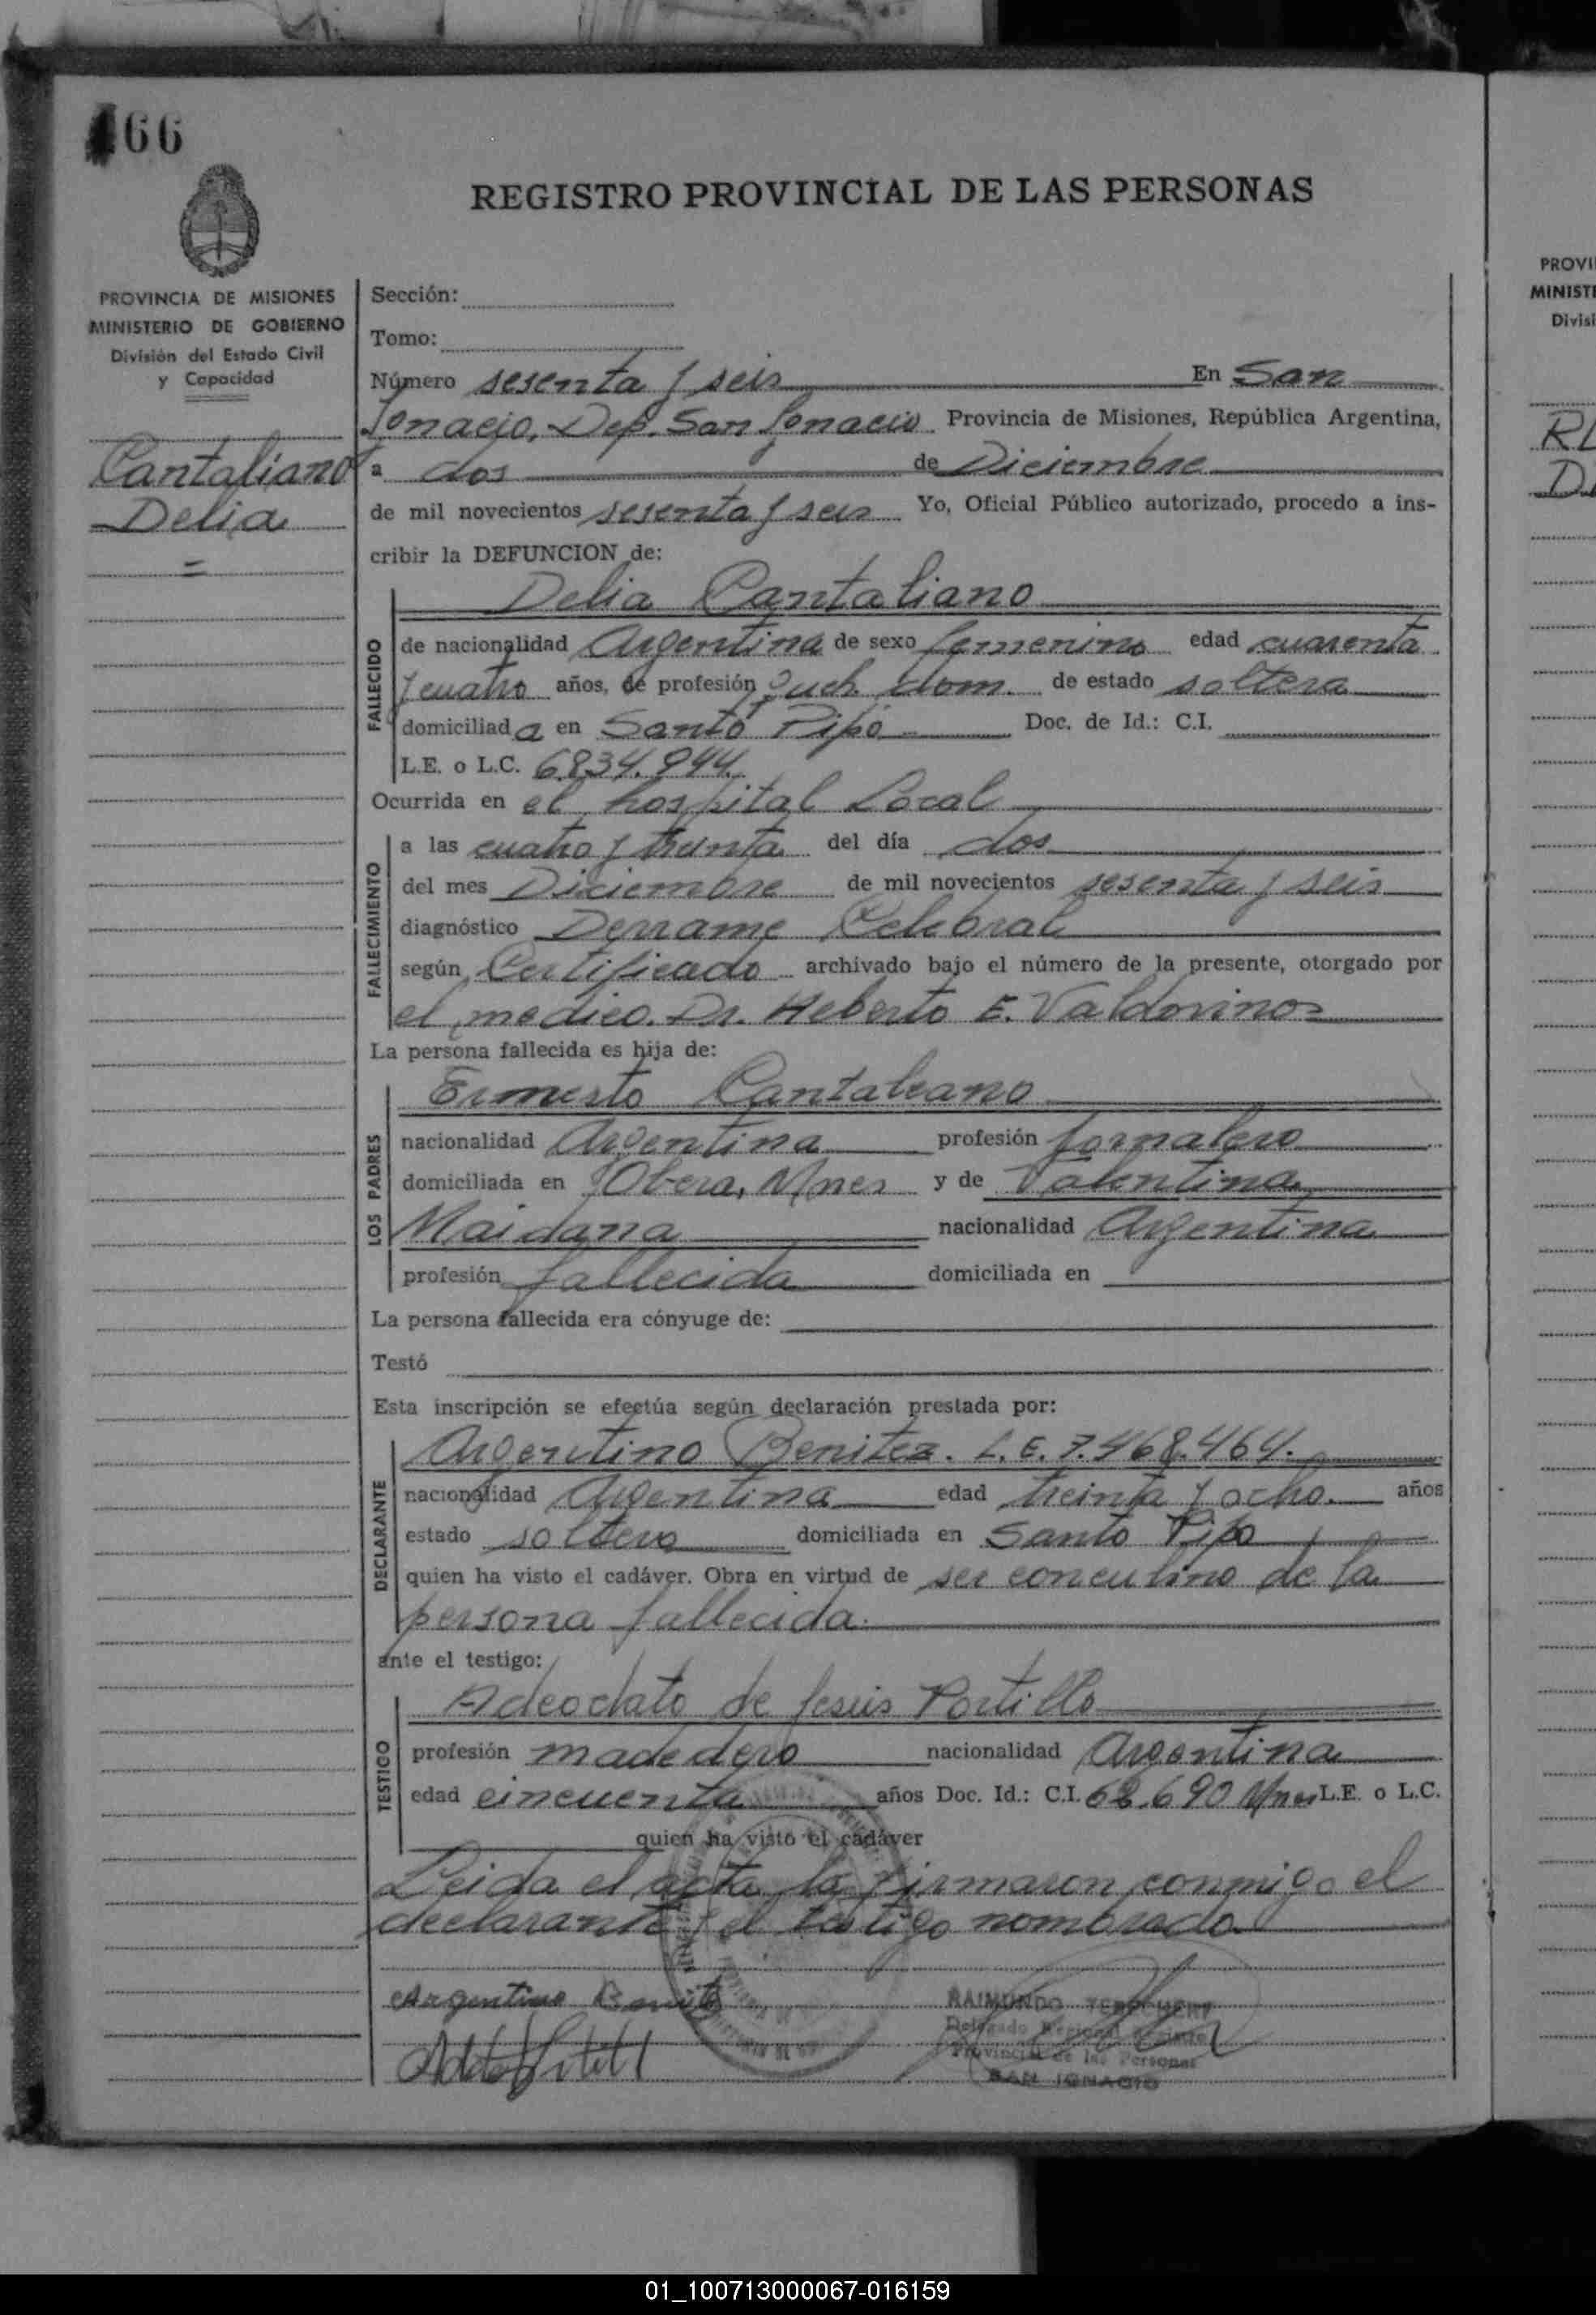 66
REGISTRO PROVINCIAL DE LAS PERSONAS
PROVINCIA DE MISIONES
MINISTERIO DE GOBIERNO
División del Estado Civil
y Capacidad
Cantaliano
Delia
=
Sección:
Tomo:
Número sesenta y seis En San
Ignacio, Dep. San Ignacio Provincia de Misiones, República Argentina,
a dos de Diciembre
de mil novecientos sesenta y seis Yo, Oficial Público autorizado, procedo a ins-
cribir la DEFUNCION de:
Delia Cantaliano
FALLECIDO
de nacionalidad Argentina de sexo femenino edad cuarenta
y cuatro años, de profesión Queh. dom. de estado soltera
domiciliada en Santo Pipó Doc. de Id.: C.I.
L.E. o L.C. 6.834.944.
Ocurrida en el hospital Local
FALLECIMIENTO
a las cuatro y treinta del día dos
del mes Diciembre de mil novecientos sesenta y seis
diagnóstico Derrame Celebral
según Certificado archivado bajo el número de la presente, otorgado por
el medico. Dr. Heberto E. Valdovinos
La persona fallecida es hija de:
LOS PADRES
Ernesto Cantaleano
nacionalidad Argentina profesión Jornalero
domiciliada en Obera, Mnes y de Valentina
Maidana nacionalidad Argentina
profesión fallecida domiciliada en
La persona fallecida era cónyuge de:
Testó
Esta inscripción se efectúa según declaración prestada por:
DECLARANTE
Argentino Benitez. L.E. 7.468.464.
nacionalidad Argentina edad treinta y ocho. años
estado soltero domiciliada en Santo Pipo
quien ha visto el cadáver. Obra en virtud de ser concubino de la
persona fallecida.
ante el testigo:
TESTIGO
Adeodato de Jesús Portillo
profesión madedero nacionalidad Argentina
edad cincuenta años Doc. Id.: C.I. 62.690 Mnes L.E. o L.C.
quien ha visto el cadáver
Leida el acta la firmaron conmigo el
declarante y el testigo nombrado
Argentino Benitez
RAIMUNDO
Delegado Regional Registro
Provincial de las Personas
SAN IGNACIO
PROVI
MINIST
Divisi
01_100713000067-016159